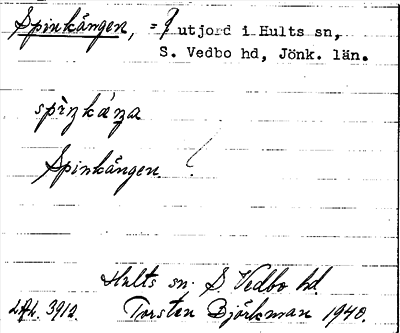 Spinkången, = ? utjord i Hults sn,
S. Vedbo hd, Jönk. län.
spìŋkáŋa
Spinkången.
Hults sn. S. Vedbo hd.
3910. Torsten Björkman 1940.